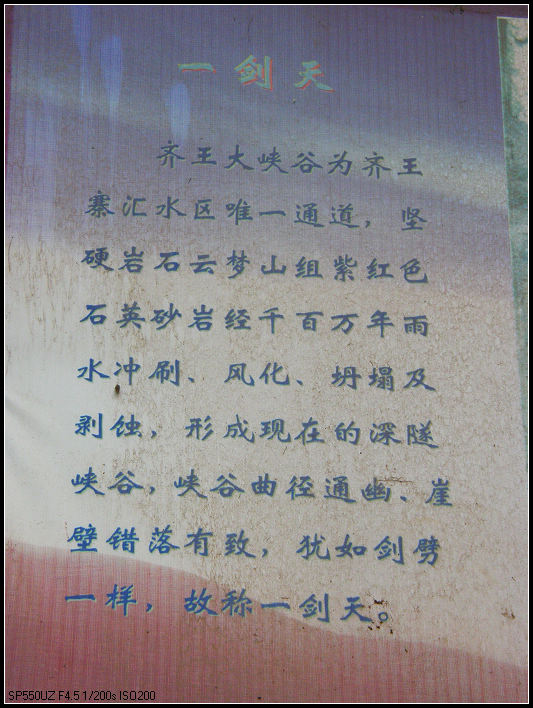 一剑天
齐王大峡谷为齐王
寨汇水区唯一通道，坚
硬岩石云梦山组紫红色
石英砂岩经千百万年雨
水冲刷、风化、坍塌及
剥蚀，形成现在的深隧
峡谷，峡谷曲径通幽、崖
壁错落有致，犹如剑劈
一样，故称一剑天。
SP550UZ F4.5 1/200s ISO200